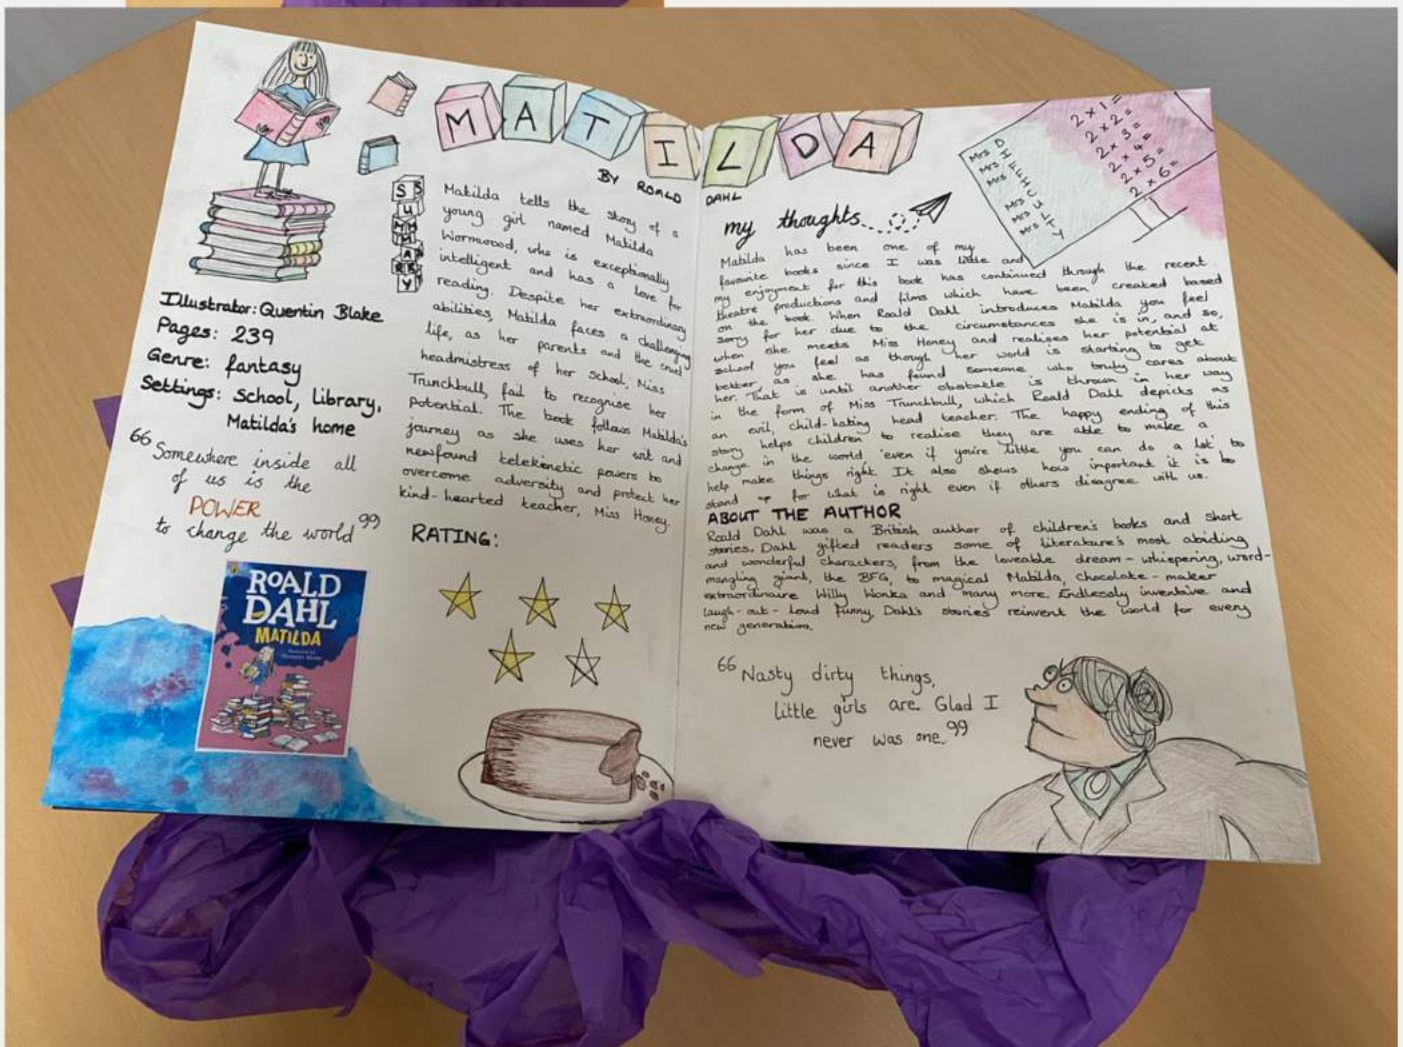 MATILDA
BY ROALD DAHL
Illustrator: Quentin Blake
Pages: 239
Genre: fantasy
Settings: School, Library,
Matilda's home
❝Somewhere inside all
of us is the
POWER
to change the world❞
ROALD
DAHL
MATILDA
SUMMARY
Matilda tells the story of a
young girl named Matilda
Wormwood, who is exceptionally
intelligent and has a love for
reading. Despite her extraordinary
abilities, Matilda faces a challenging
life, as her parents and the cruel
headmistress of her school, Miss
Trunchbull, fail to recognise her
potential. The book follows Matilda's
journey as she uses her wit and
newfound telekinetic powers to
overcome adversity and protect her
kind-hearted teacher, Miss Honey.
RATING:
Mrs D
Mrs I
Mrs F
F
I
Mrs C
Mrs U
Mrs L
T
Y
2x1=
2x2=
2x3=
2x4=
2x5=
2x6=
my thoughts...
Matilda has been one of my
favourite books since I was little and
my enjoyment for this book has continued through the recent
theatre productions and films which have been created based
on the book. When Roald Dahl introduces Matilda you feel
sorry for her due to the circumstances she is in, and so,
when she meets Miss Honey and realises her potential at
school you feel as though her world is starting to get
better, as she has found someone who truly cares about
her. That is until another obstacle is thrown in her way
in the form of Miss Trunchbull, which Roald Dahl depicts as
an evil, child-hating head teacher. The happy ending of this
story helps children to realise they are able to make a
change in the world 'even if you're little you can do a lot' to
help make things right. It also shows how important it is to
stand up for what is right even if others disagree with us.
ABOUT THE AUTHOR
Roald Dahl was a British author of children's books and short
stories. Dahl gifted readers some of literature's most abiding
and wonderful characters, from the loveable dream-whispering, word-
mangling giant, the BFG, to magical Matilda, chocolate-maker
extraordinaire Willy Wonka and many more. Endlessly inventive and
laugh-out-loud funny, Dahl's stories reinvent the world for every
new generation.
❝Nasty dirty things,
little girls are. Glad I
never was one.❞